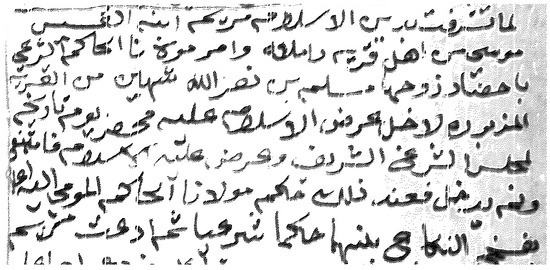 لما تشرفت بدين الاسلام مريم ابنة
موسى من اهل قرية وامر مولانا الحاكم الشرعي
باحضار زوجها مسلم بن نصر الله شهاب من القرية
المزبورة لاجل عروض الاسلام عليه فحضر يوم تاريخه
لمجلس الشرعي الشريف وعرض عليه الاسلام فامتنع
ولم يدخل فعند ذلك حكم مولانا الحاكم المومى اليه
بفسخ النكاح بينهما حكما شرعيا ثم ادعت مريم